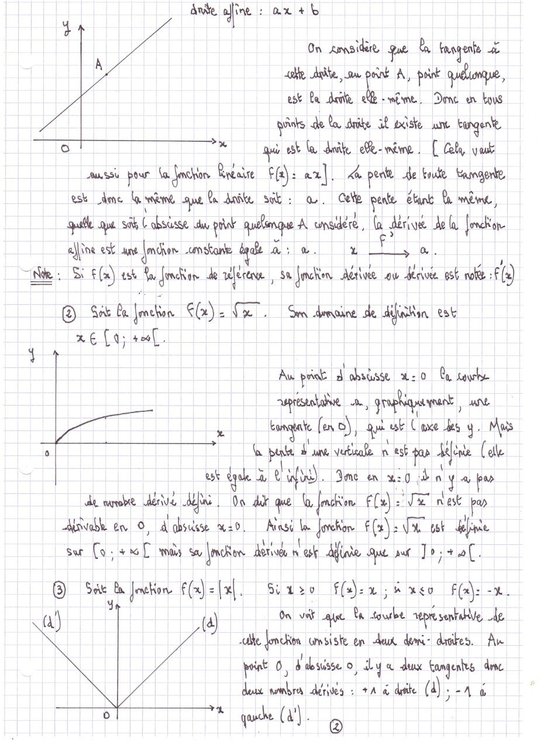 droite affine : ax + b
y
On considère que la tangente à
A
cette droite, au point A, point quelconque,
est la droite elle-même. Donc en tous
points de la droite il existe une tangente
O x
qui est la droite elle-même. [Cela vaut
aussi pour la fonction linéaire F(x) = ax]. La pente de toute tangente
est donc la même que la droite soit : a. Cette pente étant la même,
quelle que soit l'abscisse du point quelconque A considéré, la dérivée de la fonction
affine est une fonction constante égale à : a. x F' → a.
Note : Si F(x) est la fonction de référence, sa fonction dérivée ou dérivée est notée : F'(x)
② Soit la fonction F(x) = √x. Son domaine de définition est
x ∈ [0 ; +∞[.
y
Au point d'abscisse x = 0 la courbe
représentative a, graphiquement, une
x
tangente (en 0), qui est l'axe des y. Mais
o
la pente d'une verticale n'est pas définie (elle
est égale à l'infini). Donc en x = 0 il n'y a pas
de nombre dérivé défini. On dit que la fonction F(x) = √x n'est pas
dérivable en 0, d'abscisse x = 0. Ainsi la fonction F(x) = √x est définie
sur [0 ; +∞[ mais sa fonction dérivée n'est définie que sur ]0 ; +∞[.
③ Soit la fonction F(x) = |x|. Si x ≥ 0 F(x) = x ; si x ≤ 0 F(x) = -x.
y
(d') (d)
On voit que la courbe représentative de
cette fonction consiste en deux demi-droites. Au
point O, d'abscisse 0, il y a deux tangentes donc
deux nombres dérivés : +1 à droite (d) ; -1 à
O x
gauche (d').
②